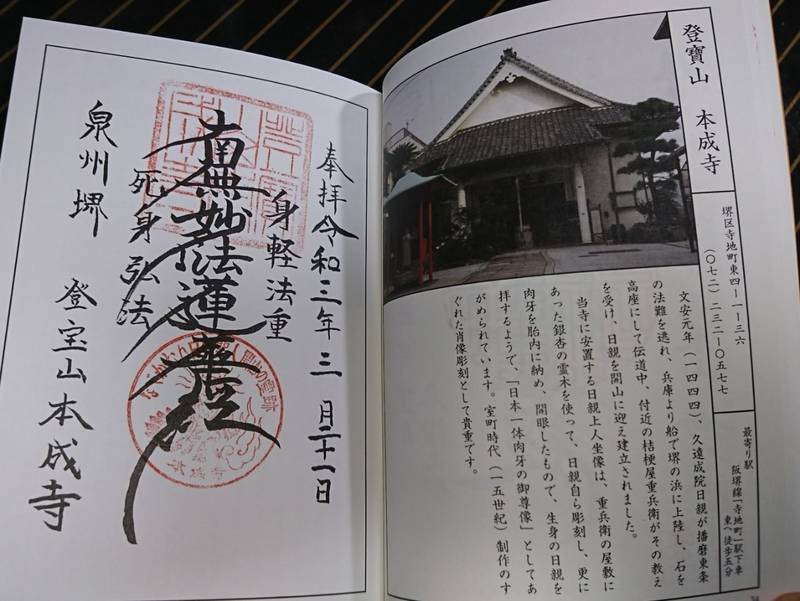 登寶山　本成寺
堺区寺地町東四ー一ー三六
（〇七二）二三二ー〇五七七
最寄り駅
阪堺線「寺地町」駅下車
東へ徒歩五分
文安元年（一四四四）、久遠成院日親が播磨東条
の法難を逃れ、兵庫より船で堺の浜に上陸し、石を
高座にして伝道中、付近の桔梗屋重兵衛がその教え
を受け、日親を開山に迎え建立されました。
当寺に安置する日親上人坐像は、重兵衛の屋敷に
あった銀杏の霊木を使って、日親自ら彫刻し、更に
肉牙を胎内に納め、開眼したもので、生身の日親を
拝するようで、「日本一体肉牙の御尊像」としてあ
がめられています。室町時代（一五世紀）制作のす
ぐれた肖像彫刻として貴重です。
奉拝令和三年三月二十一日
身軽法重
南無妙法蓮華経
死身弘法
泉州堺　登宝山本成寺